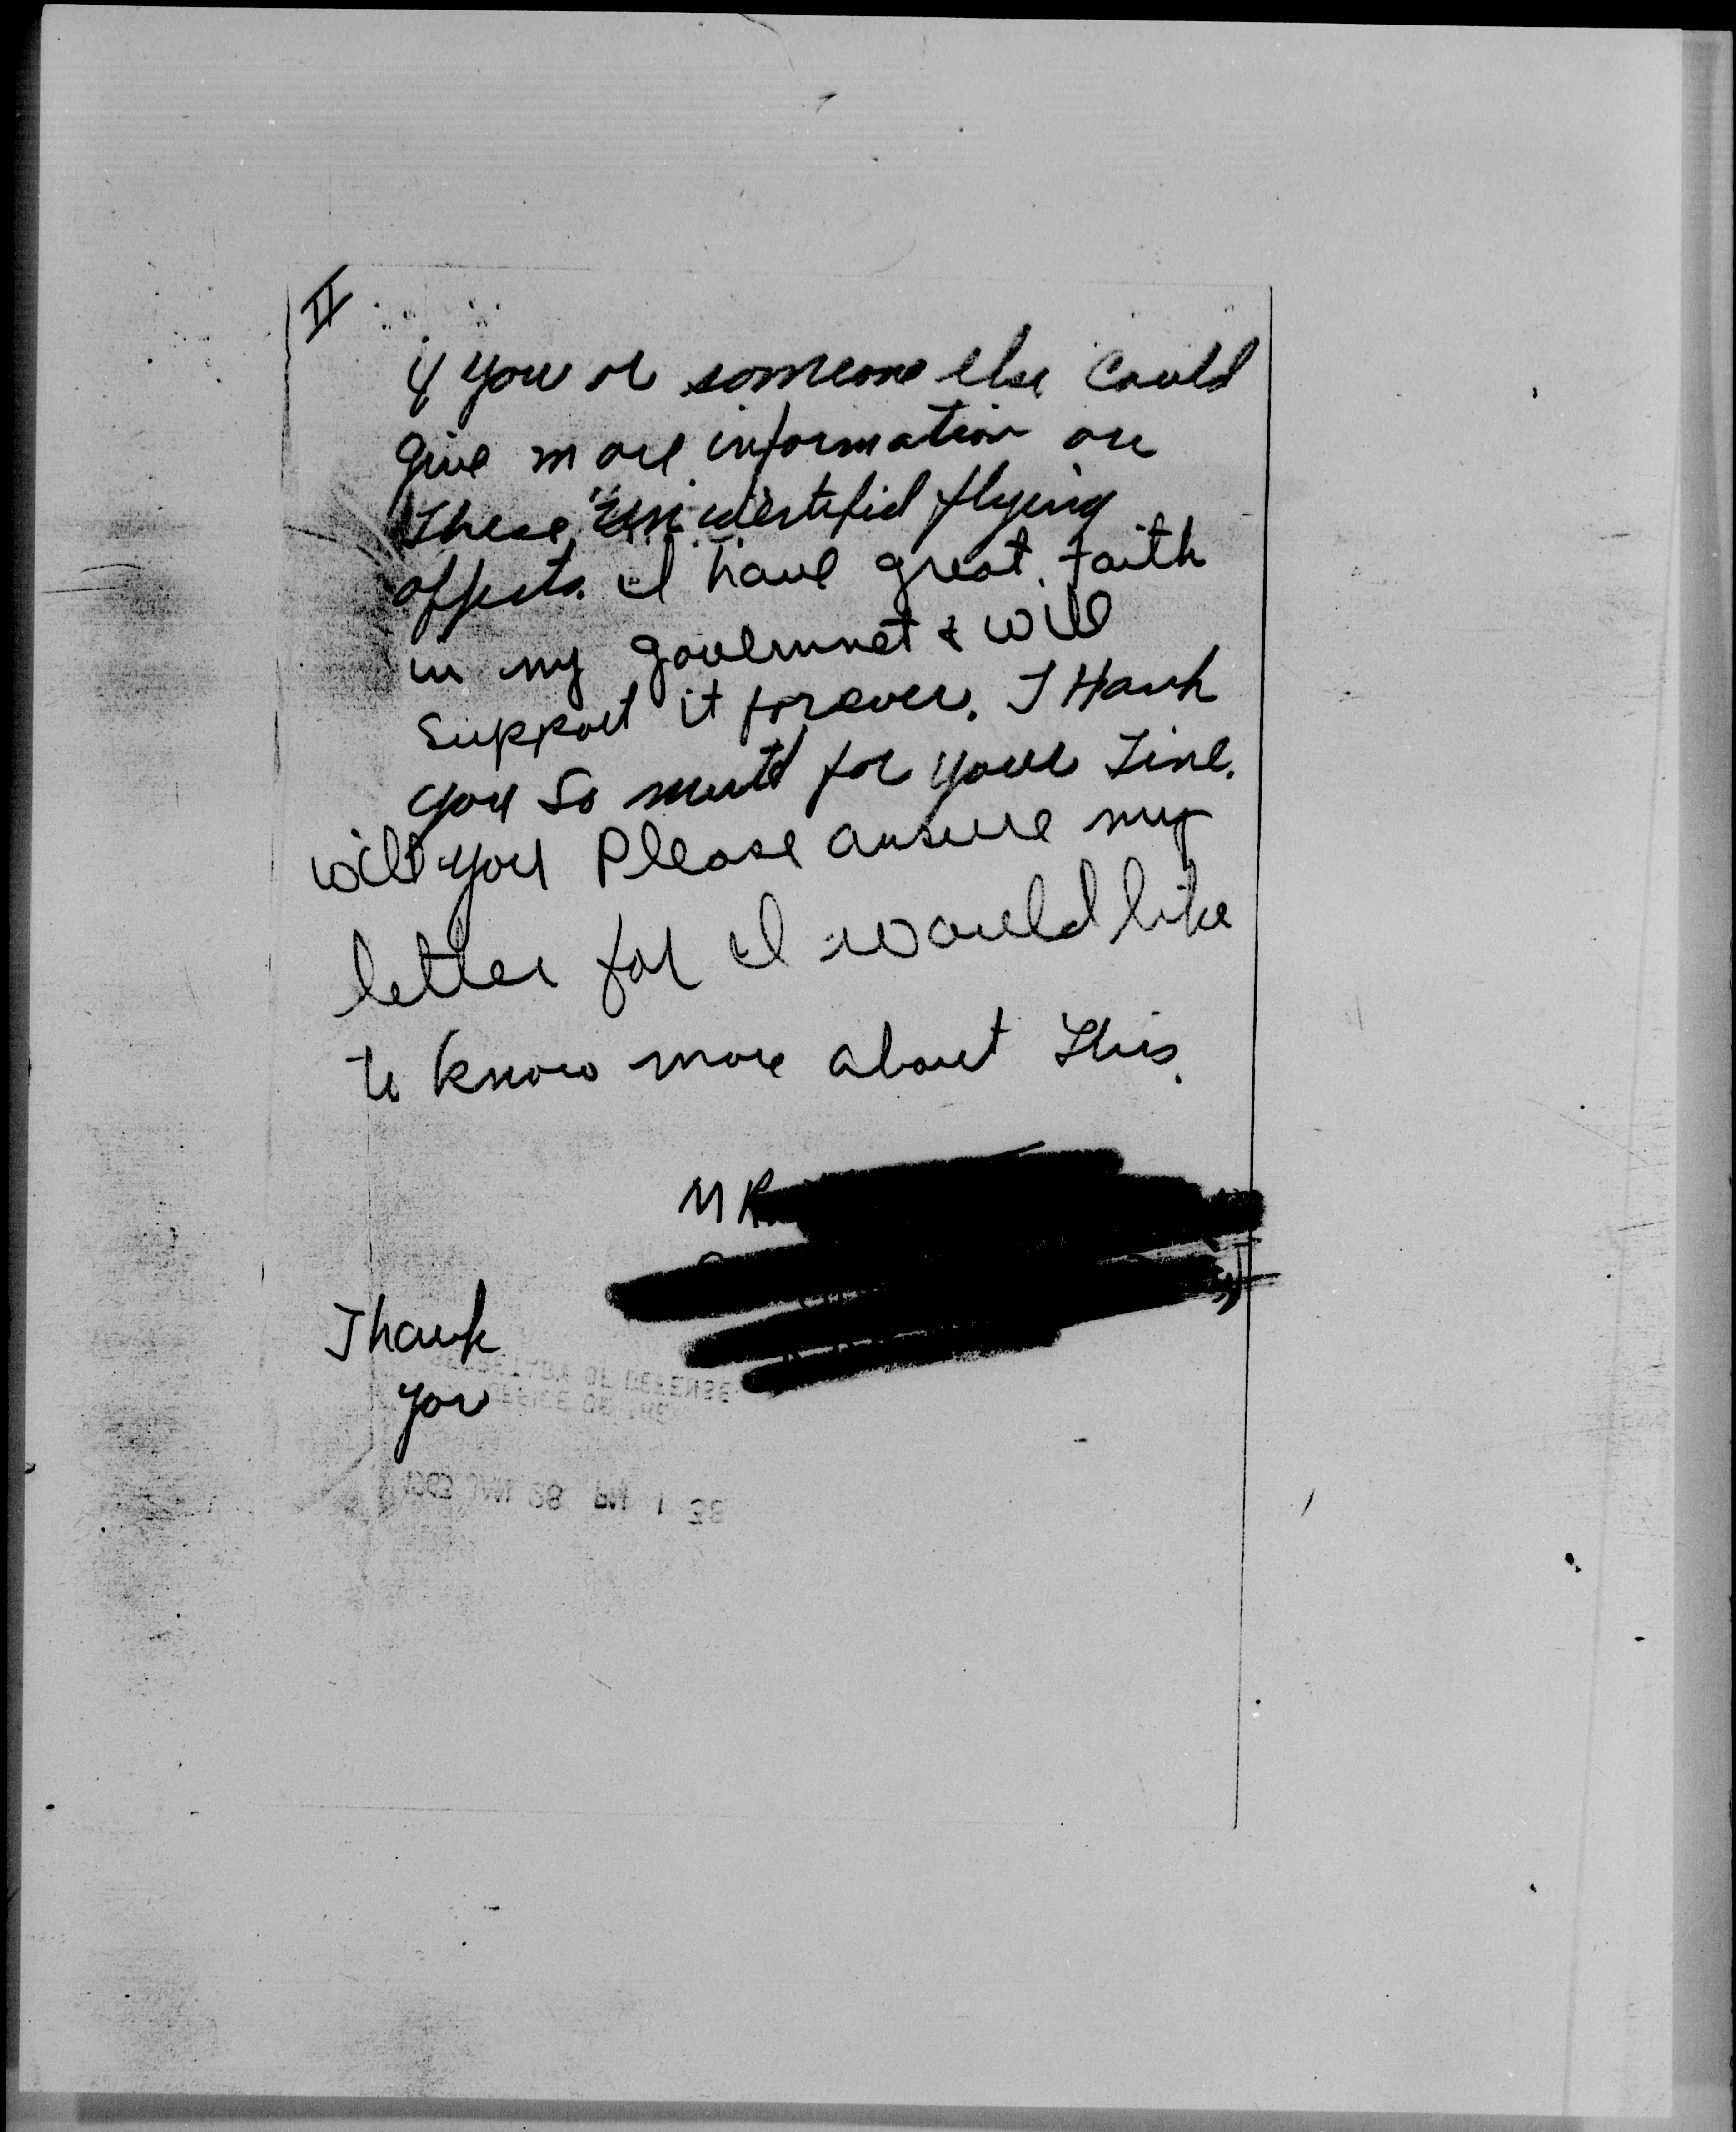 II
if you or someone else could
give more information on
these "unidentifid flying
offjects. I have great faith
in my goverunet & will
support it forever. THank
you so mutd for your Time.
will you Please answre my
letter for I would like
to know more about this.
MR
Thank
you
SECRETARY OF DEFENSE
OFFICE OF THE
JAN 28 PM 1 38